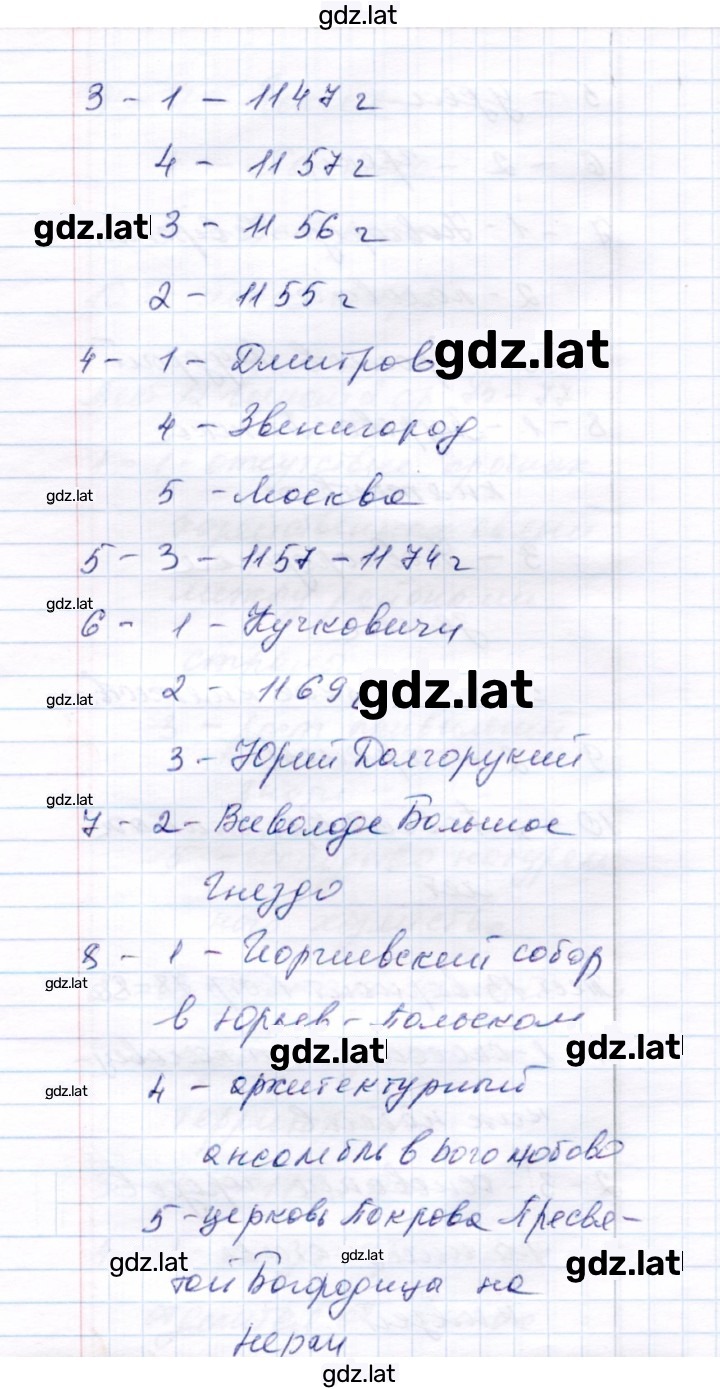 gdz.lat
3 - 1 - 1147 г
4 - 1157 г
gdz.lat 3 - 1156 г
2 - 1155 г
4 - 1 - Дмитров gdz.lat
4 - Звенигород
gdz.lat 5 - Москва
5 - 3 - 1157 - 1174 г
gdz.lat
6 - 1 - Кучковичи
gdz.lat 2 - 1169 г gdz.lat
3 - Юрий Долгорукий
gdz.lat
7 - 2 - Всеволоде Большое
Гнездо
8 - 1 - Георгиевский собор
gdz.lat
в Юрьев - Польском
gdz.lat gdz.lat
gdz.lat 4 - архитектурный
ансамбль в Боголюбово
5 - церковь Покрова Пресвя-
gdz.lat gdz.lat gdz.lat
той Богородица на
Нерли
gdz.lat